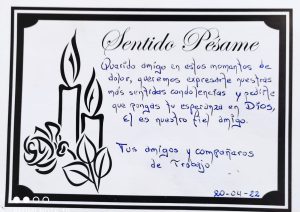 Sentido Pésame
Querido amigo en estos momentos de
dolor, queremos expresarte nuestras
más sentidas condolencias y pedirte
que pongas tu esperanza en Dios,
El es nuestro fiel amigo.
Tus amigos y compañeros
de Trabajo
20-04-22